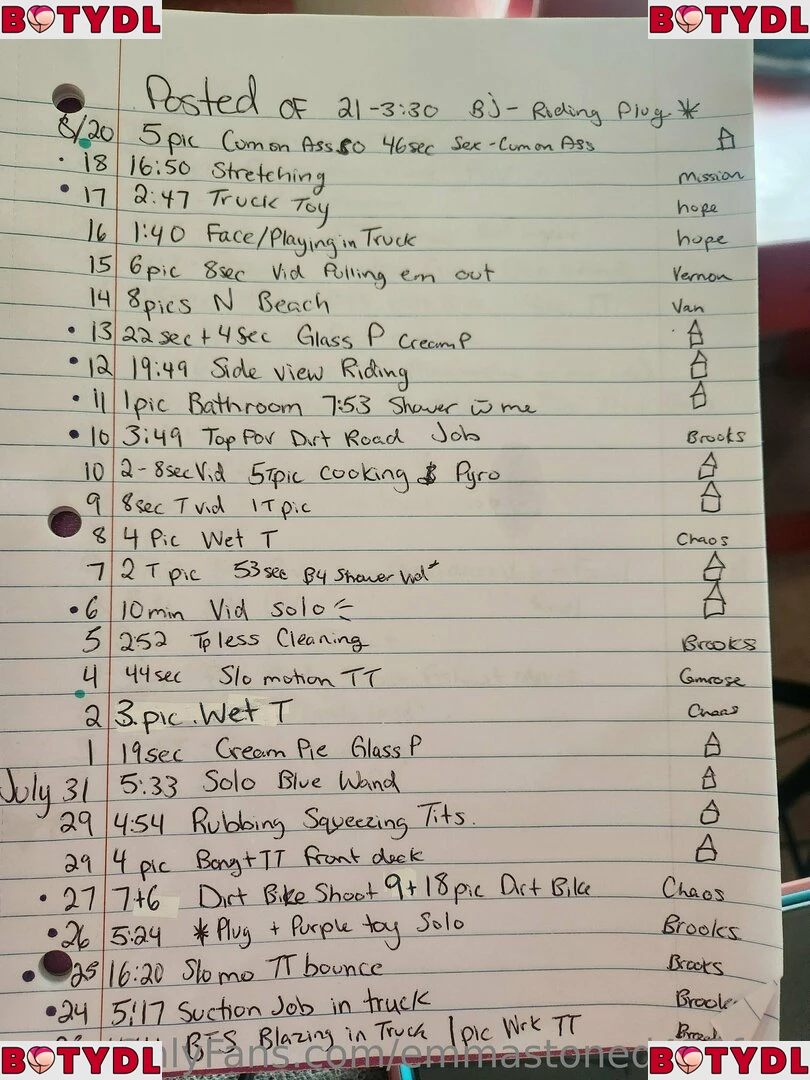 BOTYDL BOTYDL
Posted OF 21-3:30 BJ- Riding Plug *
8/20 5 pic Cum on Ass 80 46sec Sex - Cum on Ass
18 16:50 Stretching Mission
17 2:47 Truck Toy hope
16 1:40 Face/Playing in Truck hope
15 6 pic 8sec Vid Pulling em out Vernon
14 8pics N Beach Van
13 22 sec + 4 Sec Glass P Cream P
12 19:49 Side view Riding
11 1 pic Bathroom 7:53 Shower w me
10 3:49 Top Pov Dirt Road Job Brooks
10 2-8sec Vid 5Tpic cooking & Pyro
9 8sec T vid 1T pic
8 4 Pic Wet T Chaos
7 2 T pic 53 sec B4 Shower Vid*
6 10 min Vid solo
5 252 Tpless Cleaning Brooks
4 44sec Slo motion TT Camrose
2 3.pic.Wet T Chaos
1 19sec Cream Pie Glass P
July 31 5:33 Solo Blue Wand
29 4:54 Rubbing Squeezing Tits.
29 4 pic Bong+TT front deck
27 7+6 Dirt Bike Shoot 9+18pic Dirt Bike Chaos
26 5:24 * Plug + Purple toy Solo Brooks
25 16:20 Slo mo TT bounce Brooks
24 5:17 Suction Job in truck
BTS Blazing in Truck 1 pic Wrk TT
OnlyFans.com/emmastoned
BOTYDL BOTYDL